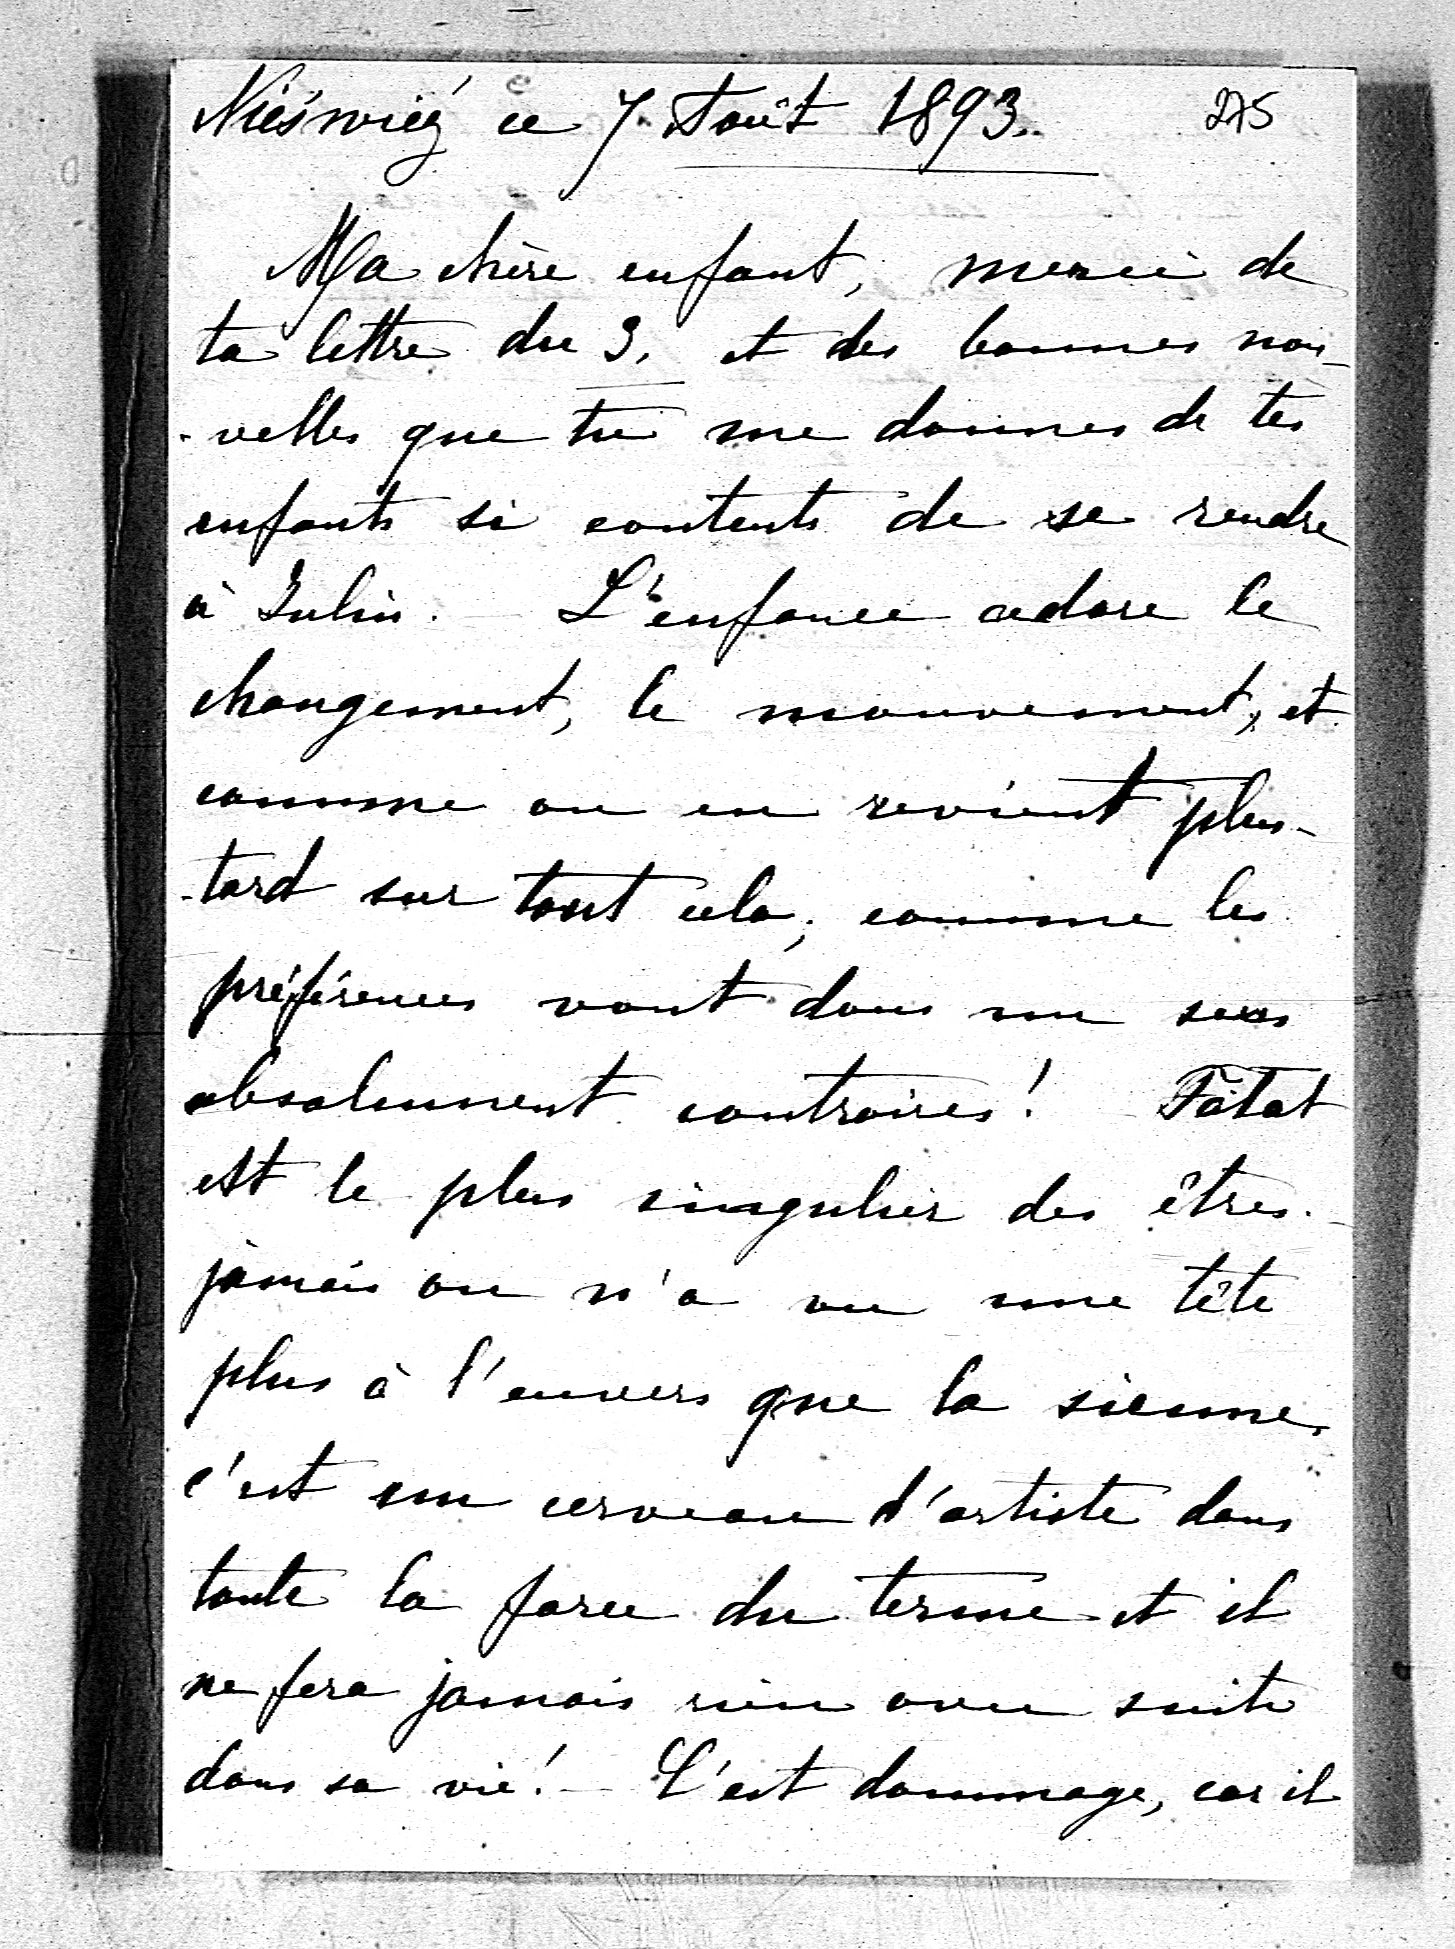 Nieśwież ce 7 Août 1893. 275
Ma chère enfant, merci de
ta lettre du 3. et des bonnes nou-
-velles que tu me donnes de tes
enfants si contents de se rendre
à Julin. — L'enfance adore le
changement, le mouvement, et
comme on en revient plus-
-tard sur tout cela, comme les
préférences vont dans un sens
absolument contraires! Fatat
est le plus singulier des êtres.
jamais on n'a vu une tête
plus à l'envers que la sienne,
c'est un cerveau d'artiste dans
toute la force du terme et il
ne fera jamais rien avec suite
dans sa vie! — C'est dommage, car il